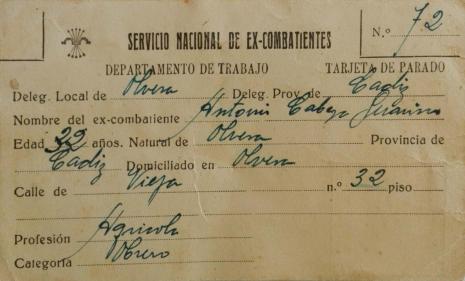 N.º 72
SERVICIO NACIONAL DE EX-COMBATIENTES
DEPARTAMENTO DE TRABAJO TARJETA DE PARADO
Deleg. Local de Olvera Deleg. Prov. de Cadiz
Nombre del ex-combatiente Antonio Cabeza
Edad 32 años. Natural de Olvera Provincia de
Cadiz Domiciliado en Olvera
Calle de Vieja n.º 32 piso
Profesión Agricola
Categoría Obrero